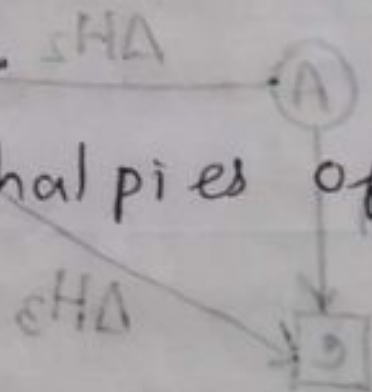 ΔH₂
A
halpies of
ΔH₃